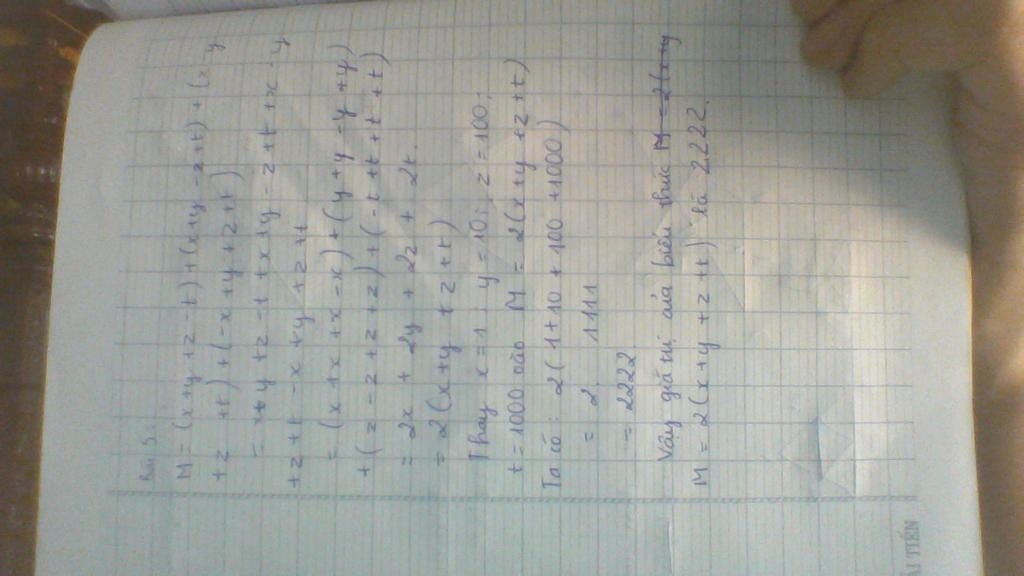 Bài 5:
M = (x+y+z-t)+(x+y-z+t)+(x-y
+z+t)+(-x+y+z+t)
= x+y+z-t+x+y-z+t+x-y
+z+t-x+y+z+t
= (x+x+x-x)+(y+y-y+y)
+(z-z+z+z)+(-t+t+t+t)
= 2x + 2y + 2z + 2t.
= 2(x+y+z+t)
Thay x=1; y=10; z=100;
t=1000 vào M = 2(x+y+z+t)
Ta có: 2(1+10+100+1000)
= 2. 1111
= 2222.
Vậy giá trị của biểu thức M = 2(x+y
M = 2(x+y+z+t) là 2222.
ẢI TIẾN